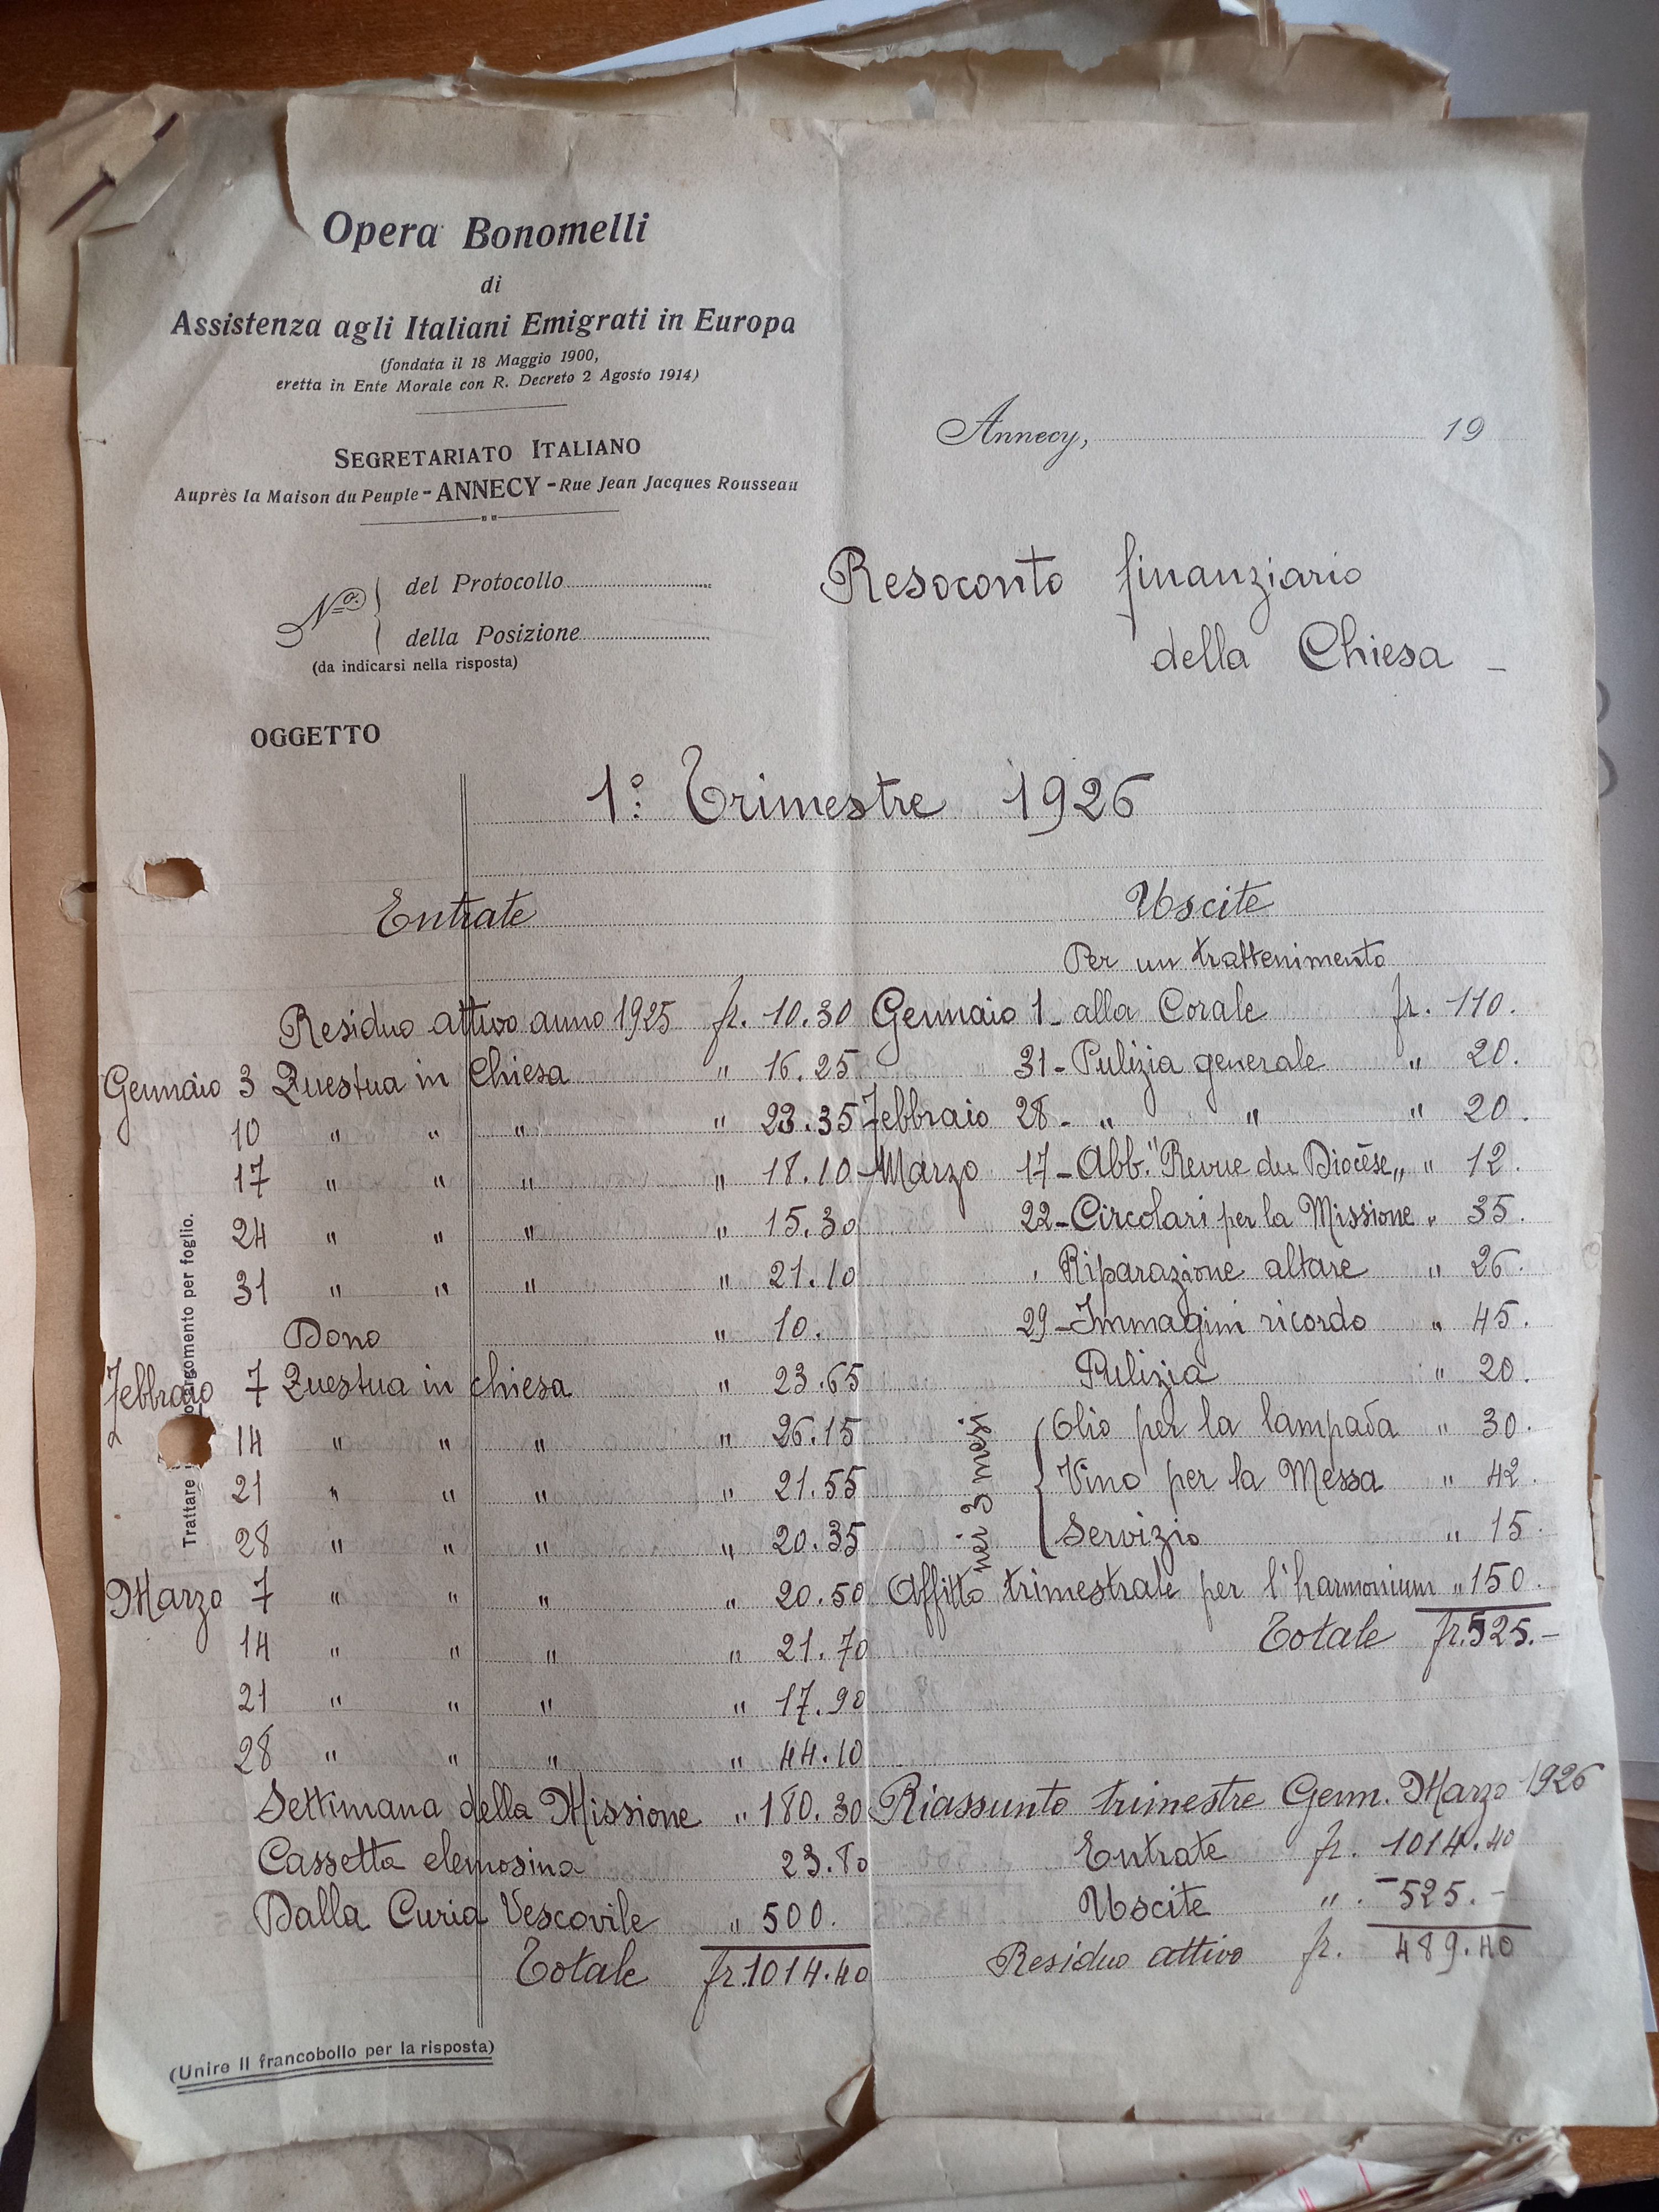 Opera Bonomelli
di
Assistenza agli Italiani Emigrati in Europa
(fondata il 18 Maggio 1900,
eretta in Ente Morale con R. Decreto 2 Agosto 1914)
SEGRETARIATO ITALIANO
Auprès la Maison du Peuple - ANNECY - Rue Jean Jacques Rousseau
Annecy, 19
No. del Protocollo
della Posizione
(da indicarsi nella risposta)
Resoconto finanziario
della Chiesa -
OGGETTO
1º Trimestre 1926
Entrate
Residuo attivo anno 1925 fr. 10.30
Gennaio 3 Questua in Chiesa " 16.25
10 " " " " 23.35
17 " " " " 18.10
24 " " " " 15.30
31 " " " " 21.10
Dono " 10.
Febbraio 7 Questua in chiesa " 23.65
14 " " " " 26.15
21 " " " " 21.55
28 " " " " 20.35
Marzo 7 " " " " 20.50
14 " " " " 21.70
21 " " " " 17.90
28 " " " " 44.10
Settimana della Missione " 180.30
Cassetta elemosina 23.80
Dalla Curia Vescovile " 500.
Totale fr. 1014.40
Uscite
Per un trattenimento
Gennaio 1 - alla Corale fr. 110.
31 - Pulizia generale " 20.
Febbraio 28 - " " " 20.
Marzo 17 - Abb. "Revue du Diocèse„ " 12.
22 - Circolari per la Missione " 35.
Riparazione altare " 26.
29 - Immagini ricordo " 45.
Pulizia " 20.
per 3 mesi
Olio per la lampada " 30.
Vino per la Messa " 42.
Servizio " 15.
Affitto trimestrale per l'harmonium " 150.
Totale fr. 525.-
Riassunto trimestre Genn. Marzo 1926
Entrate fr. 1014.40
Uscite " - 525.-
Residuo attivo fr. 489.40
Trattare
argomento per foglio.
(Unire Il francobollo per la risposta)